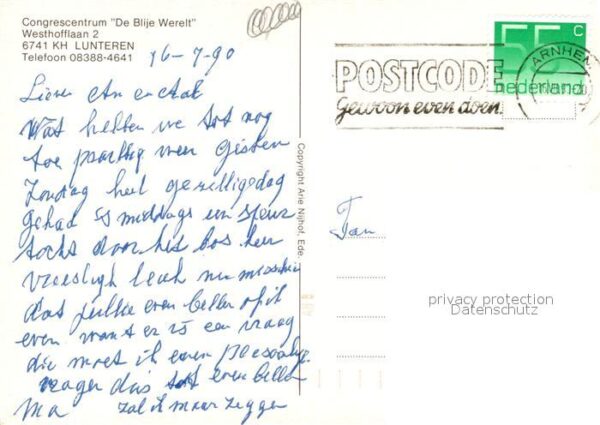 Congrescentrum "De Blije Werelt"
Westhofflaan 2
6741 KH LUNTEREN
Telefoon 08388-4641
16-7-90
Lieven An en Aat
Wat hebben we tot nog
toe prachtig weer Gisteren
Zondag heel gezellige dag
gehad 's middags een speur
tocht door het bos heen
vreselijk leuk nu misschien
dat jullie even bellen of ik
even want er is een vraag
die moet ik even persoonlijk
vragen dus tot even bellen
Ma zal ik maar zeggen
Copyright Arie Nijhof, Ede.
POSTCODE
gewoon even doen.
ARNHEM
55 c
nederland
Fam
privacy protection
Datenschutz